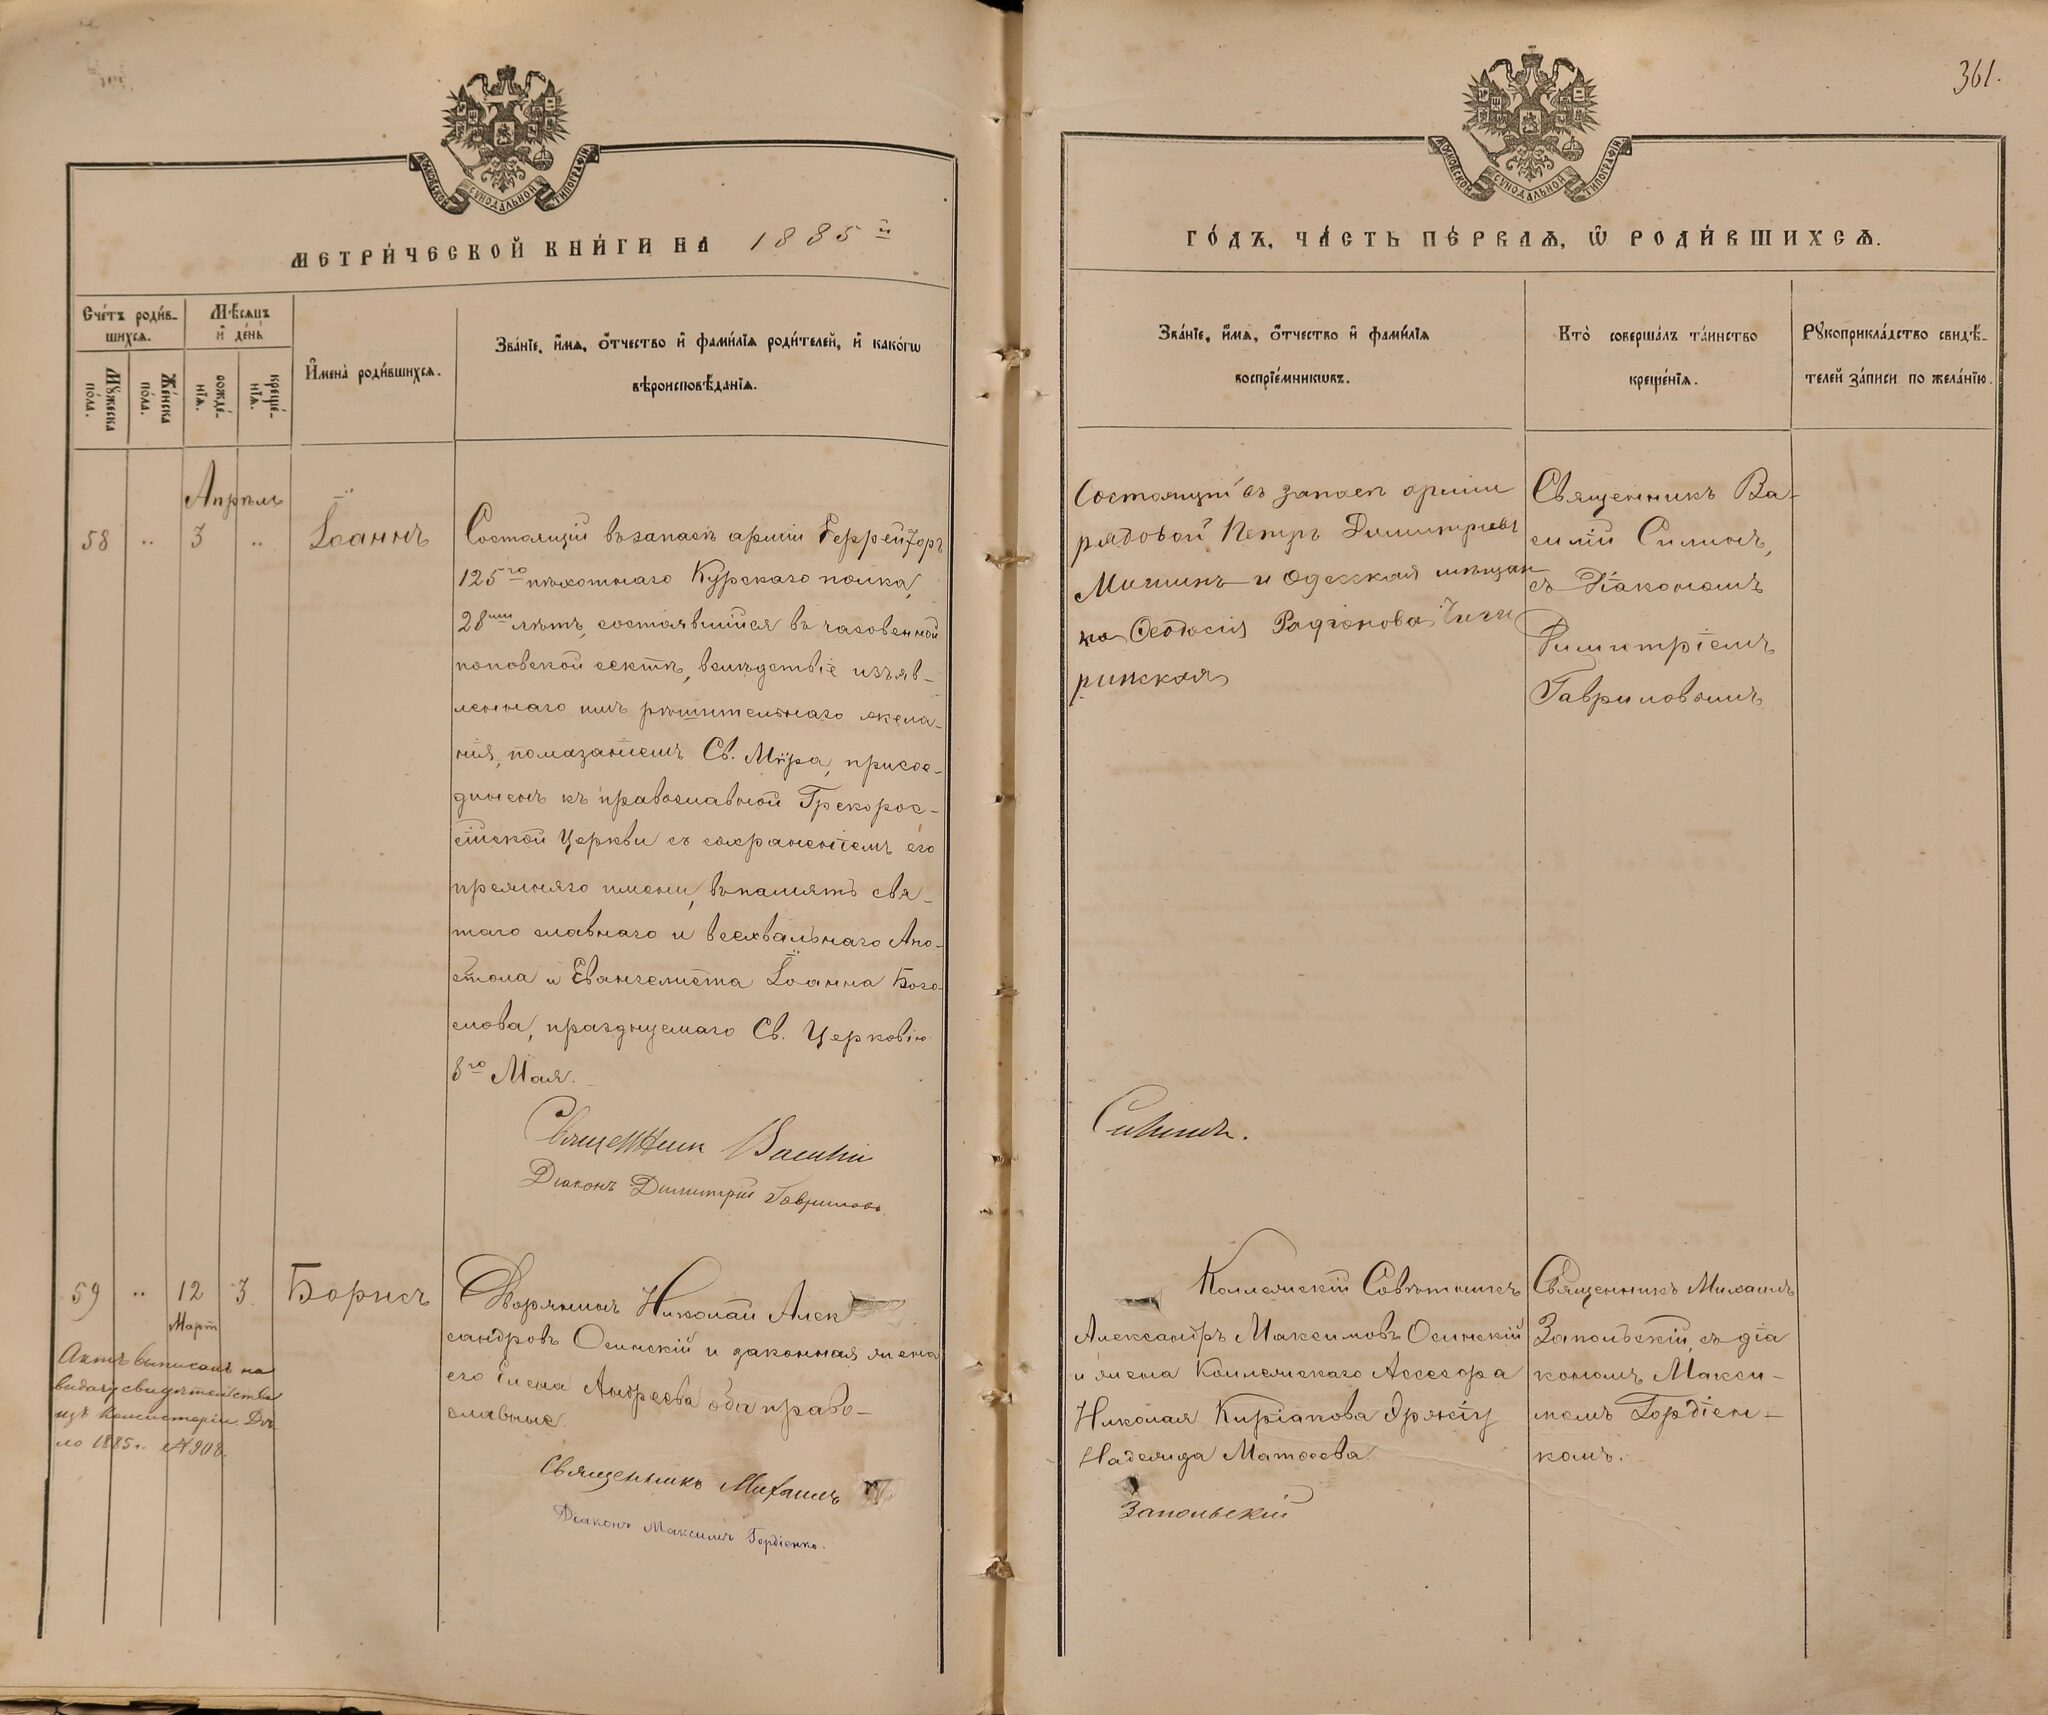 МОСКОВСКОЙ СѴНОДАЛЬНОЙ ТИПОГРАФІИ
МЕТРИ́ЧЕСКОЙ КНИ́ГИ НА 1885й
Сче́тъ роди́в-
шихся.
Мѣ́сяцъ
и҆ де́нь
Мꙋжеска по́ла.
Же́нска по́ла.
рожде́-
нїя.
креще́-
нїя.
И҆мена̀ роди́вшихся.
Зва́нїе, и҆́мя, ѻ҆́тчество и҆ фами́лїя роди́телей, и҆ како́гѡ
вѣроисповѣ́данїя.
Апрѣль
58 „ 3 „ Іоаннъ
Состоящій въ запасѣ арміи Геррейфоръ
125го пѣхотнаго Курскаго полка,
28ми лѣтъ, состоявшійся въ часовенной
поповской сектѣ, вслѣдствіе изъяв-
леннаго имъ рѣшительнаго жела-
нія, помазаніемъ Св. Мѵра, присое-
диненъ къ православной Грекорос-
сійской Церкви съ сохраненіемъ его
прежняго имени, въ память свя-
таго славнаго и всехвальнаго Апо-
стола и Евангелиста Іоанна Бого-
слова, празднуемаго Св. Церковію
8го Мая.
Священникъ Василій
Діаконъ Димитрій Гавриловъ.
59 „ 12 3. Борисъ
Мартъ
Актъ выписанъ на
выдачу свидѣтельства
изъ Консисторіи. Дѣ-
ло 1885 г. №908.
Дворянинъ Николай Алек
сандровъ Осинскій и законная жена
его Елена Андреева оба право-
славные.
Священникъ Михаилъ
Діаконъ Максимъ Гордіенко.
361.
МОСКОВСКОЙ СѴНОДАЛЬНОЙ ТИПОГРАФІИ
ГО́ДЪ, ЧА́СТЬ ПЕ́РВАЯ, Ѡ҆ РОДИ́ВШИХСЯ.
Зва́нїе, и҆́мя, ѻ҆́тчество и҆ фами́лїя
воспрїе́мникѡвъ.
Кто̀ соверша́лъ та́инство
креще́нїя.
Рꙋкоприкла́дство свидѣ́-
телей за́писи по жела́нїю.
Состоящій въ запасѣ арміи
рядовой Петръ Димитріевъ
Мишинъ и Одесская мѣщан
ка Ѳеодосія Радіонова Чиги
ринская
Священникъ Ва-
силій Силинъ,
съ Діакономъ
Димитріемъ
Гавриловымъ
Силинъ.
Коллежскій Совѣтникъ
Александръ Максимовъ Осинскій
и жена Коллежскаго Ассесора
Николая Киріакова
Надежда Матѳеева.
Священникъ Михаилъ
Запольскій, съ діа
кономъ Макси-
момъ Гордіен-
комъ.
Запольскій